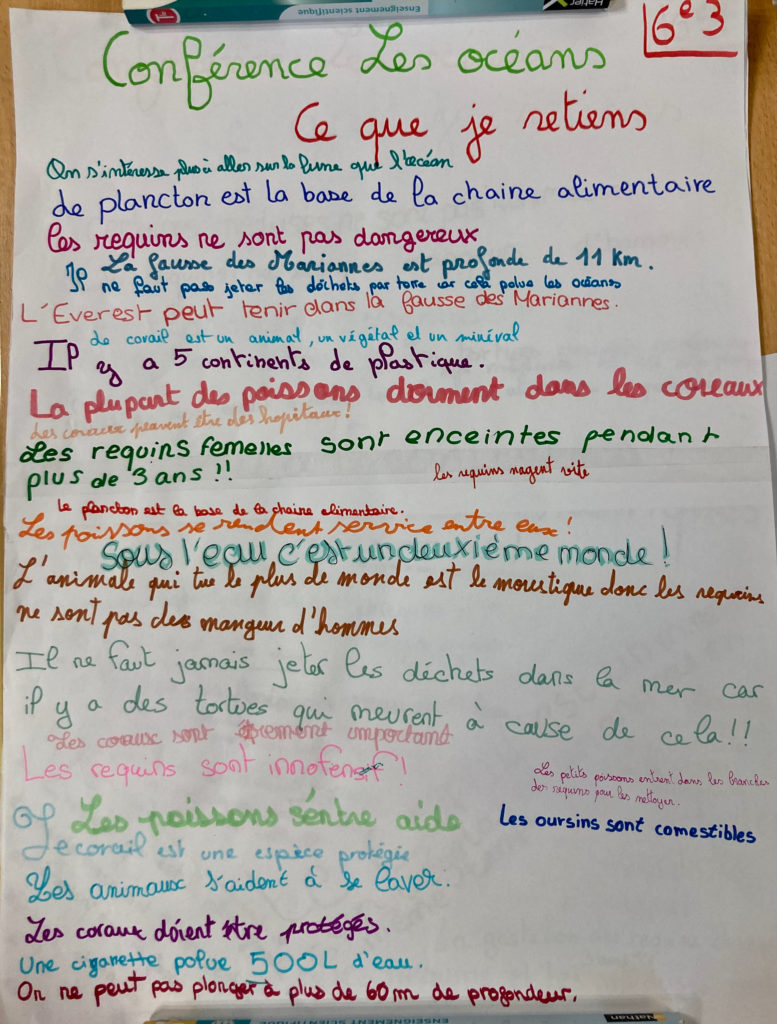 Enseignement scientifique
Hatier
6e 3
Conférence Les océans
Ce que je retiens
On s'intéresse plus à aller sur la lune que l'océan
de plancton est la base de la chaine alimentaire
les requins ne sont pas dangereux
La fausse des Mariannes est profonde de 11 Km.
Il ne faut pas jeter les déchets par terre car cela polue les océans
L'Everest peut tenir dans la fausse des Mariannes.
de corail est un animal, un végétal et un minéral
Il y a 5 continents de plastique.
La plupart des poissons dorment dans les coreaux
Les coraux peuvent être des hopitaux!
Les requins femelles sont enceintes pendant
plus de 3 ans !!
les requins nagent vite
Le plancton est la base de la chaine alimentaire.
Les poissons se rendent service entre eux!
Sous l'eau c'est un deuxième monde!
L'animale qui tue le plus de monde est le moustique donc les requins
ne sont pas des mangeur d'hommes
Il ne faut jamais jeter les déchets dans la mer car
il y a des tortues qui meurent à cause de cela!!
Les coraux sont important
Les requins sont innofensif!
Les petits poissons entrent dans les branches
des requins pour les nettoyer.
Les poissons s'entre aide
Les oursins sont comestibles
Le corail est une espèce protégée
Les animaux s'aident à se laver.
Les coraux doient être protégés.
Une cigarette polue 500L d'eau.
On ne peut pas plonger à plus de 60m de profondeur.
ENSEIGNEMENT SCIENTIFIQUE
Nathan